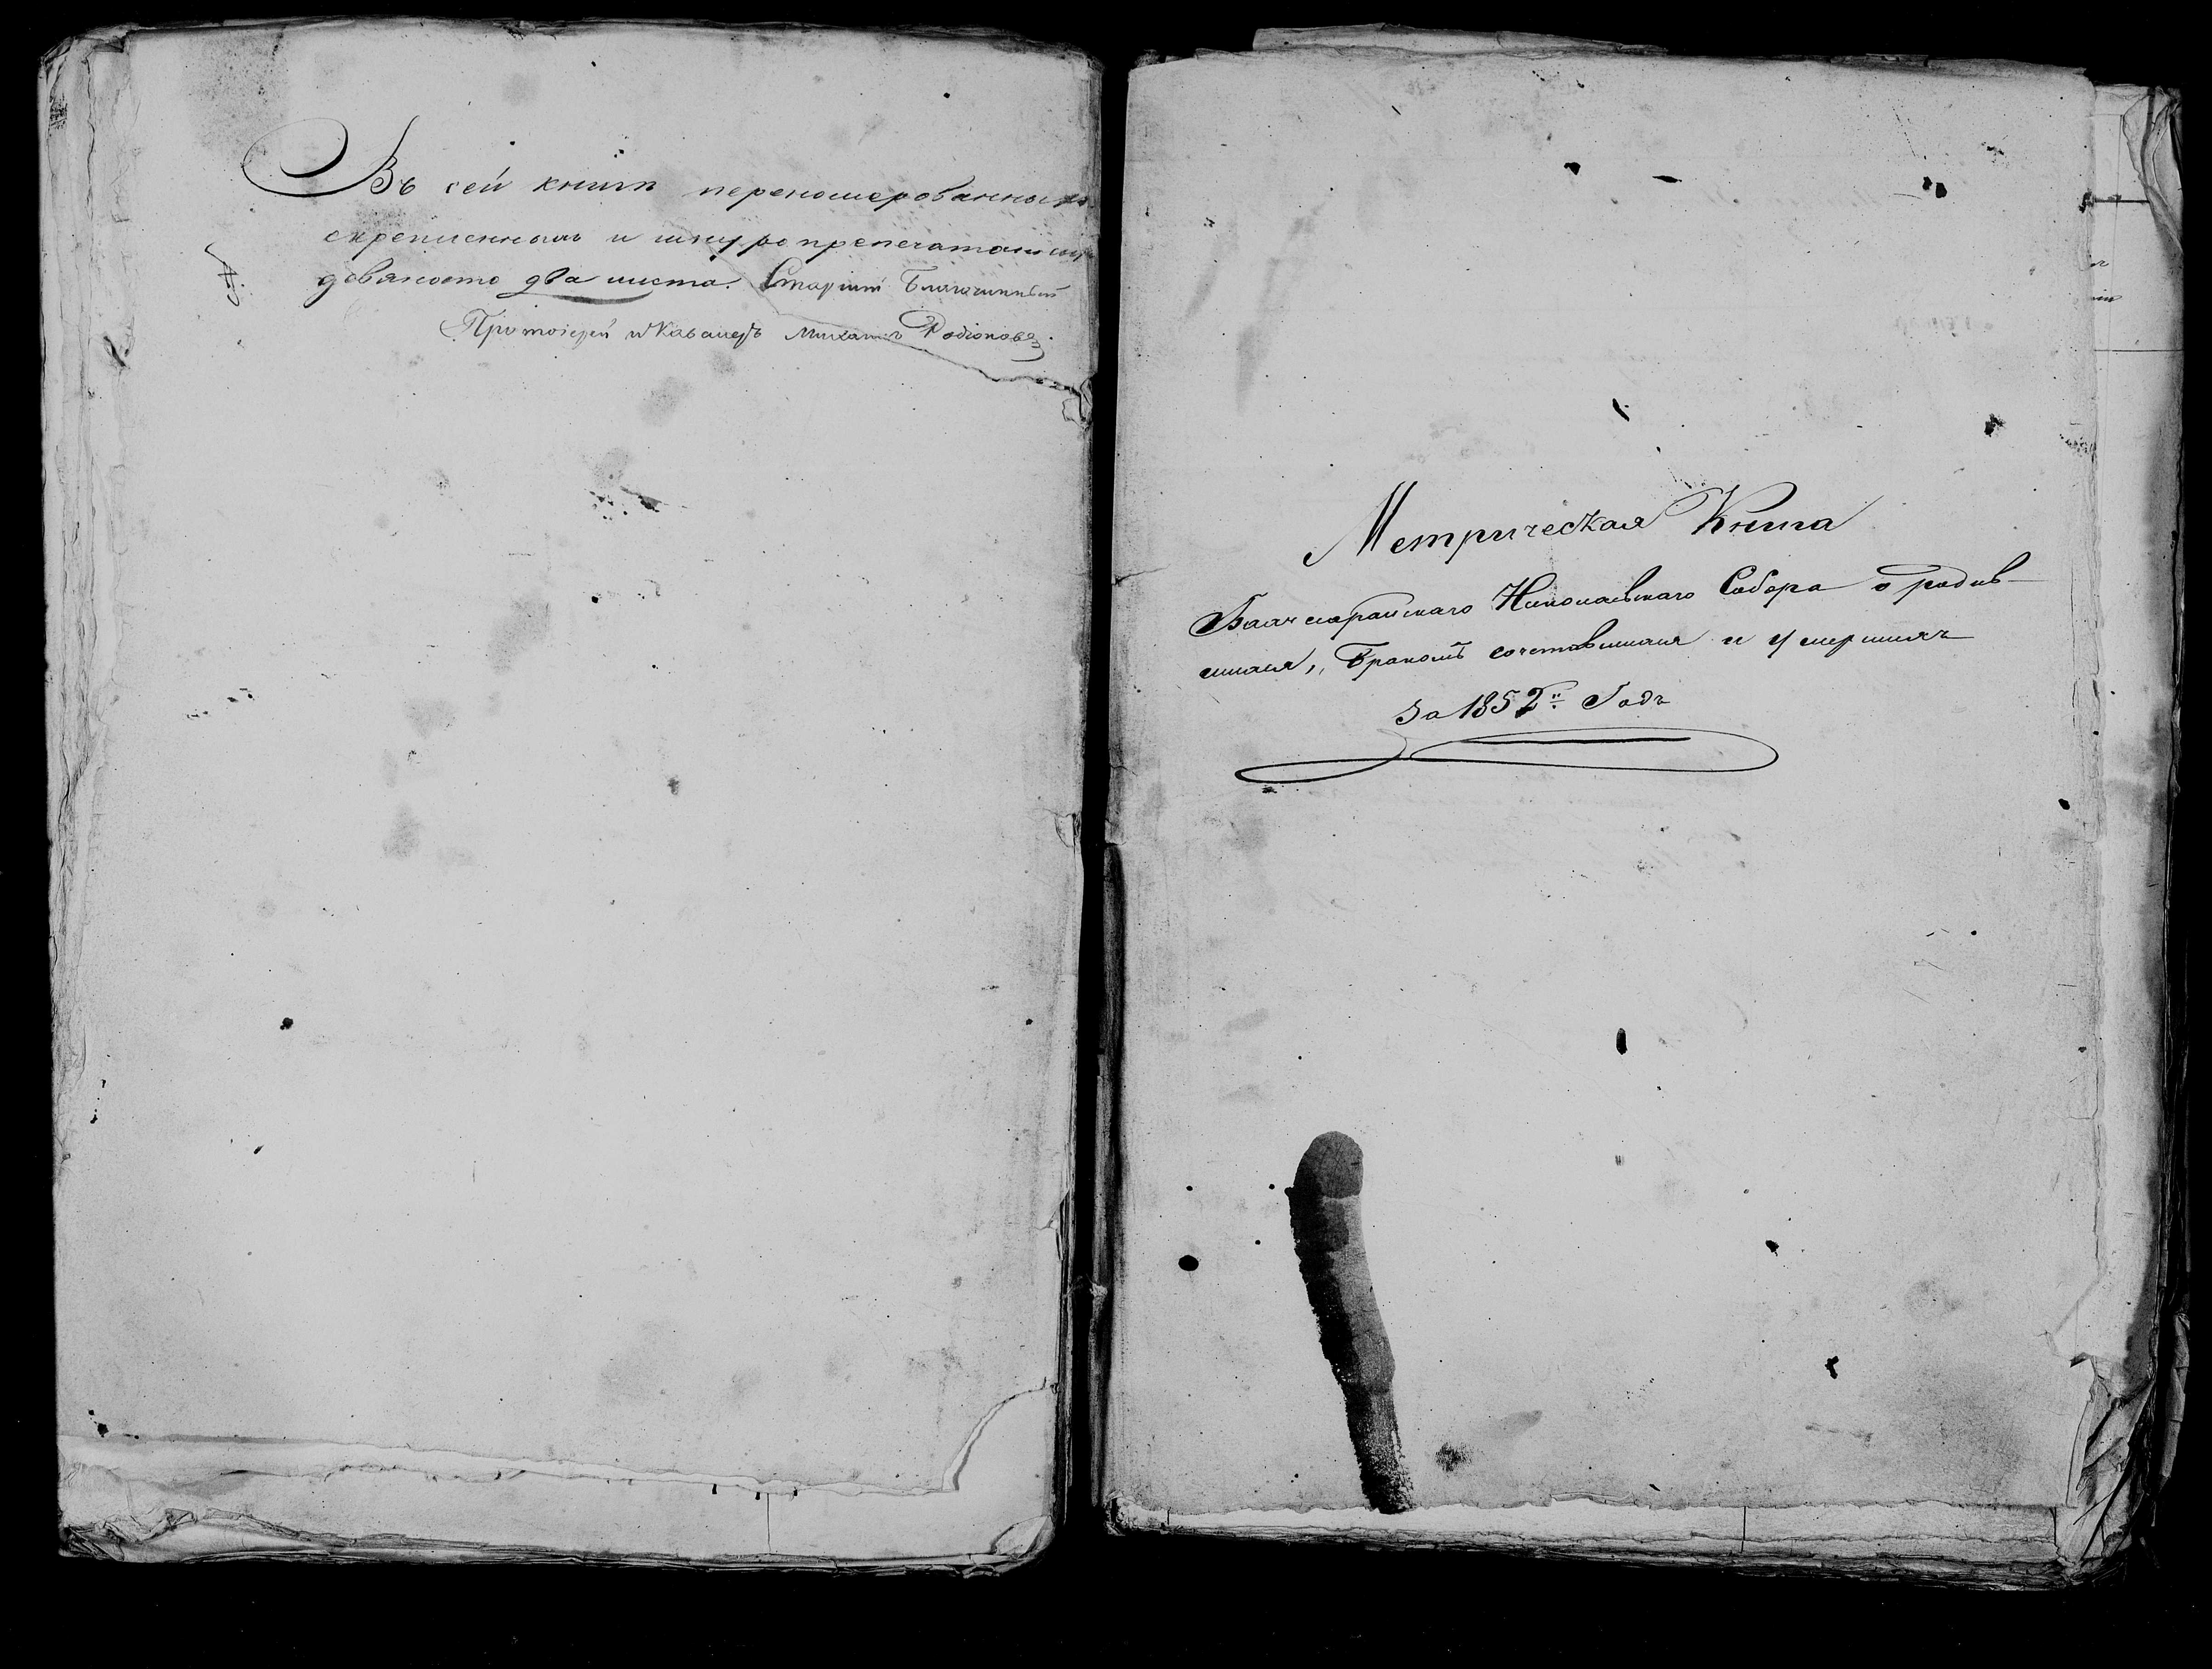 Въ сей книгѣ переномерованныхъ
скрепленныхъ и шнуропрепечатанныхъ
девяносто два листа. Старшій Благочинный
Протоіерей и Кавалеръ Михаилъ Родіоновъ
Метрическая Книга
Бахчисарайскаго Николаевскаго Собора о родив-
шихся, бракомъ сочетавшихся и умершихъ
За 1852й Годъ